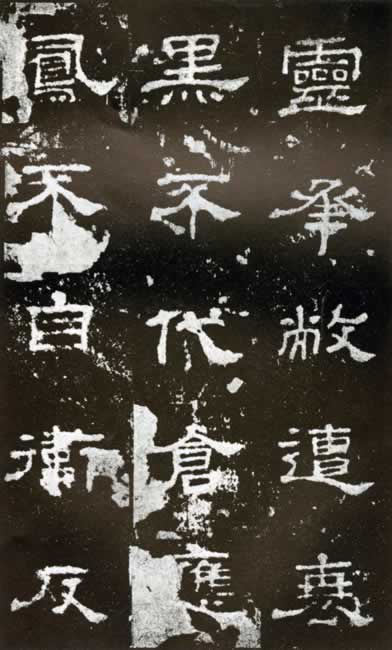 靈承敝遭衰
黑不代倉應
鳳不自衛反